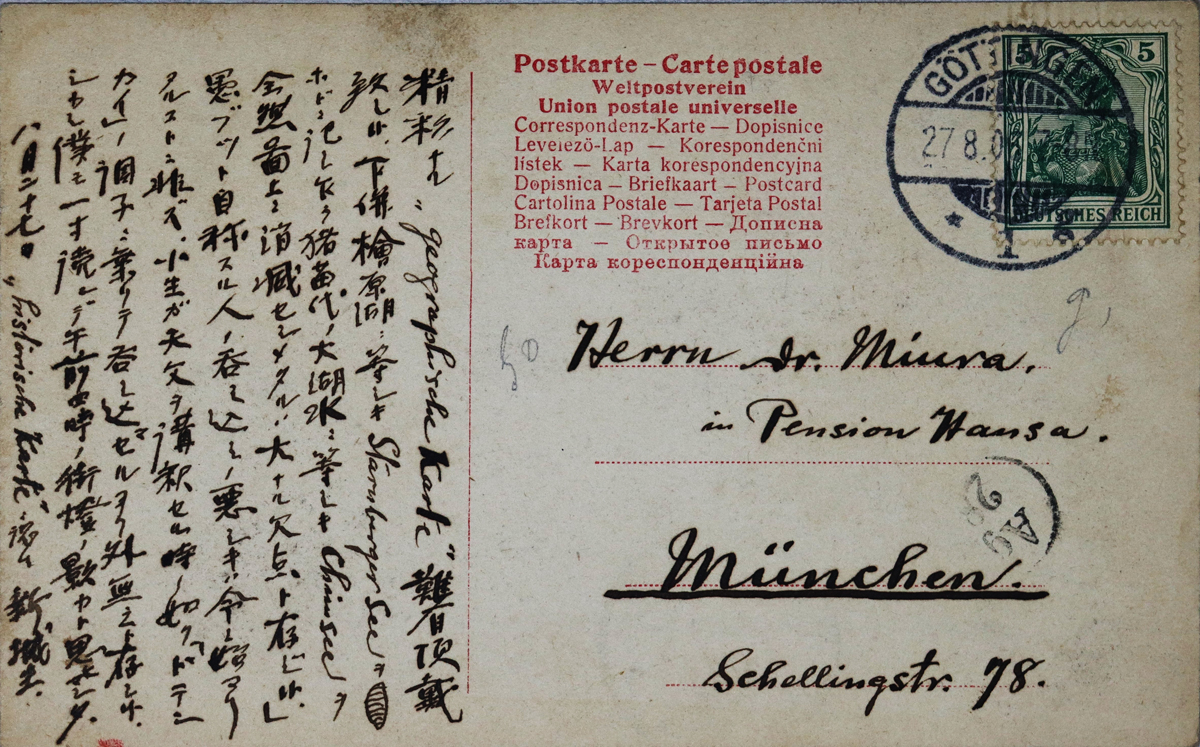 Postkarte – Carte postale
Weltpostverein
Union postale universelle
Correspondenz-Karte — Dopisnice
Levelező-Lap — Korespondenční
lístek — Karta korespondencyjna
Dopisnica — Briefkaart — Postcard
Cartolina Postale — Tarjeta Postal
Brefkort — Brevkort — Дописна
карта — Открытое письмо
Карта кореспонденційна
5
5
DEUTSCHES REICH
GÖTTINGEN
27.8.0
* 1
Herrn Dr. Miura.
in Pension Hansa.
München.
Schellingstr. 78.
26
Ag
精彩ナル "geographische Karte" 難有頂戴
致し候、下併檜原湖ニ等シキ Starnberger See ヲ
ホドニ記シ 猪苗代ノ大湖水ニ等シキ Chimsee ヲ
全然図上ニ消滅セシメタルハ大ナル欠点ト存じ候。
悪ブツト自称スル人ノ呑ミ込ミノ悪シキハ今ニ始マリ
タルコトニ非ズ、小生ガ天文ヲ講釈セル時ノ如ク「ドテン
カイ」ノ調子ニ乗リテ呑ミ込ゼルヨリ外無之ト存じ候。
シカシ僕モ一寸読ンデ午前四時ノ街燈ノ影カト思ヒタ
八月二十七日 "historische Karte" 新城生.